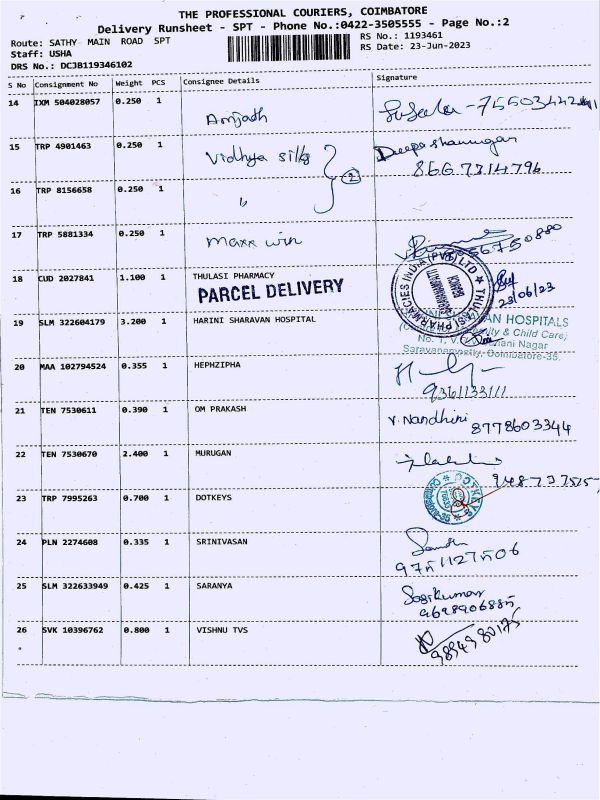 THE PROFESSIONAL COURIERS, COIMBATORE
Delivery Runsheet - SPT - Phone No.:0422-3505555 - Page No.:2
Route: SATHY MAIN ROAD SPT
RS No.: 1193461
Staff: USHA
RS Date: 23-Jun-2023
DRS No.: DCJB119346102
S No Consignment No Weight PCS Consignee Details Signature
14 IXM 504028057 0.250 1 Amjath
15 TRP 4901463 0.250 1 Vidhya silks 2 Deepa shanmugar
8667314796
16 TRP 8156658 0.250 1 "
17 TRP 5881334 0.250 1 Maxx win
18 CUD 2027841 1.100 1 THULASI PHARMACY
PARCEL DELIVERY
THULASI PHARMACIES INDIA (PVT) LTD
23/06/23
19 SLM 322604179 3.200 1 HARINI SHARAVAN HOSPITAL
AN HOSPITALS
& Child Care)
No. 1, V.
Nagar
Saravanampatty, Coimbatore-35.
20 MAA 102794524 0.355 1 HEPHZIPHA
9361133111
21 TEN 7530611 0.390 1 OM PRAKASH V. Nandhini 8778603344
22 TEN 7530670 2.400 1 MURUGAN
23 TRP 7995263 0.700 1 DOTKEYS
24 PLN 2274608 0.335 1 SRINIVASAN
9751127506
25 SLM 322633949 0.425 1 SARANYA Sasikumar
9698906885
26 SVK 10396762 0.800 1 VISHNU TVS
9894980175